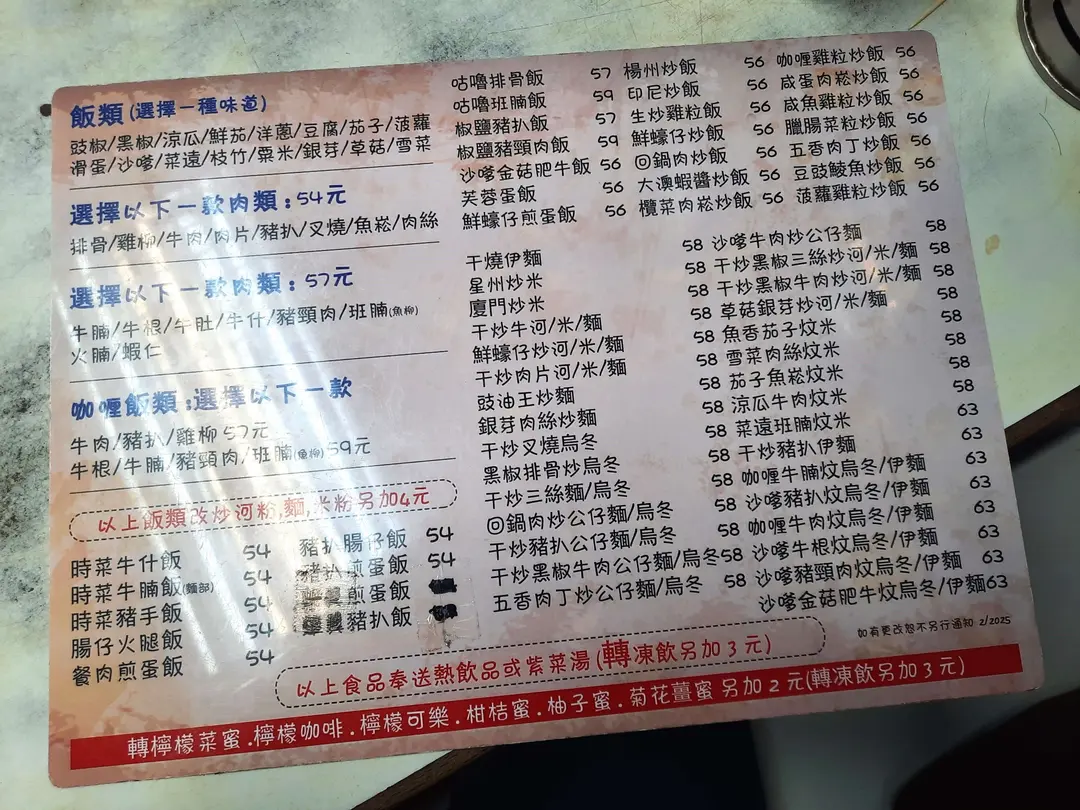 飯類 (選擇一種味道)
豉椒/黑椒/涼瓜/鮮茄/洋蔥/豆腐/茄子/菠蘿
滑蛋/沙嗲/菜遠/枝竹/粟米/銀芽/草菇/雪菜
選擇以下一款肉類:54元
排骨/雞柳/牛肉/肉片/豬扒/叉燒/魚崧/肉絲
選擇以下一款肉類:57元
牛腩/牛根/牛肚/牛什/豬頸肉/班腩(魚柳)
火腩/蝦仁
咖喱飯類:選擇以下一款
牛肉/豬扒/雞柳 57元
牛根/牛腩/豬頸肉/班腩(魚柳)59元
以上飯類改炒河粉,麵,米粉另加4元
時菜牛什飯 54
時菜牛腩飯(麵部) 54
時菜豬手飯 54
腸仔火腿飯 54
餐肉煎蛋飯 54
豬扒腸仔飯 54
豬扒煎蛋飯 54
煎蛋飯
豬扒飯
咕嚕排骨飯 57
咕嚕班腩飯 59
椒鹽豬扒飯 57
椒鹽豬頸肉飯 59
沙嗲金菇肥牛飯 56
芙蓉蛋飯 56
鮮蠔仔煎蛋飯 56
楊州炒飯 56
印尼炒飯 56
生炒雞粒飯 56
鮮蠔仔炒飯 56
回鍋肉炒飯 56
大澳蝦醬炒飯 56
欖菜肉崧炒飯 56
咖喱雞粒炒飯 56
咸蛋肉崧炒飯 56
咸魚雞粒炒飯 56
臘腸菜粒炒飯 56
五香肉丁炒飯 56
豆豉鯪魚炒飯 56
菠蘿雞粒炒飯 56
干燒伊麵 58
星州炒米 58
廈門炒米 58
干炒牛河/米/麵 58
鮮蠔仔炒河/米/麵 58
干炒肉片河/米/麵 58
豉油王炒麵 58
銀芽肉絲炒麵 58
干炒叉燒烏冬 58
黑椒排骨炒烏冬 58
干炒三絲麵/烏冬 58
回鍋肉炒公仔麵/烏冬 58
干炒豬扒公仔麵/烏冬 58
干炒黑椒牛肉公仔麵/烏冬58
五香肉丁炒公仔麵/烏冬 58
沙嗲牛肉炒公仔麵 58
干炒黑椒三絲炒河/米/麵 58
干炒黑椒牛肉炒河/米/麵 58
草菇銀芽炒河/米/麵 58
魚香茄子炆米 58
雪菜肉絲炆米 58
茄子魚崧炆米 58
涼瓜牛肉炆米 58
菜遠班腩炆米 63
干炒豬扒伊麵 63
咖喱牛腩炆烏冬/伊麵 63
沙嗲豬扒炆烏冬/伊麵 63
咖喱牛肉炆烏冬/伊麵 63
沙嗲牛根炆烏冬/伊麵 63
沙嗲豬頸肉炆烏冬/伊麵 63
沙嗲金菇肥牛炆烏冬/伊麵63
如有更改恕不另行通知 2/2025
以上食品奉送熱飲品或紫菜湯 (轉凍飲另加3元)
轉檸檬菜蜜.檸檬咖啡.檸檬可樂.柑桔蜜.柚子蜜.菊花薑蜜 另加2元(轉凍飲另加3元)